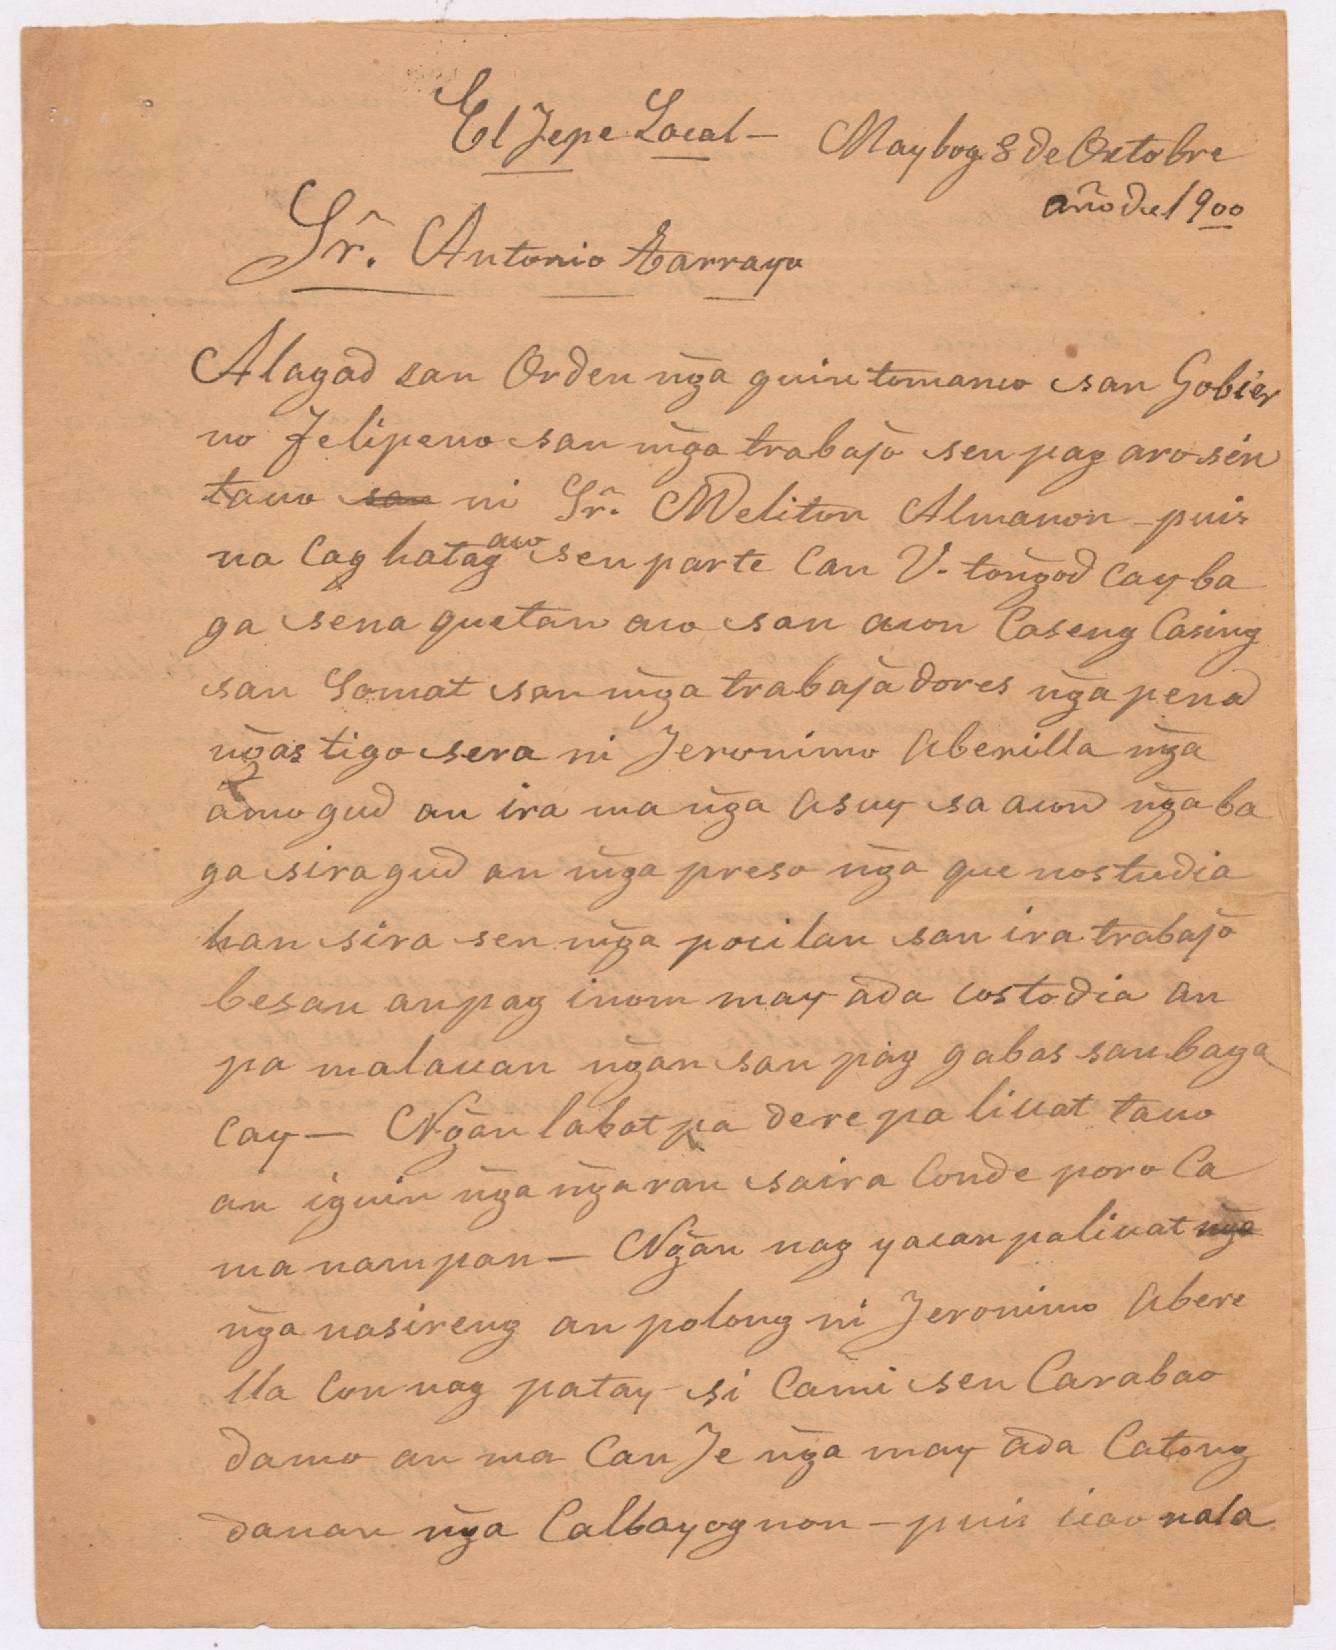 El Jepe Local — Maybog 8 de Octobre
año del 1900
Sr. Antonio Tarraya
Alagad san Orden nga guin tomanco san Gobier
no Felipeno san mga trabajo sen pag aro sin
tauo san ni Sr. Meliton Almanon puis
na Cag hatag aco sen parte Can V. tongod Cay ba
ga sena quetan aco san acon Caseng Casing
san Somat san mga trabajadores nga pena
ngas tigo sera ni Jeronimo Aberilla nga
amo gud an ira ma nga Asuy sa acon nga ba
ga sira gud an mga preso nga que nostudia
han sira sen mga pocilan san ira trabajo
besan an pag inom may ada costodia an
pa malauan ngan san pag gabas san baga
cay — Ngan labot pa dere pa liuat tauo
an iguin nga ngaran sa ira Conde poro Ca
ma nampan — Ngan nag yacan paliuat nga
nga nasireng an polong ni Jeronimo Abere
lla Con nag patay si Cami sen Carabao
damo an ma Can Je nga may ada Catong
danan nga Calbayognon — puis icao nala